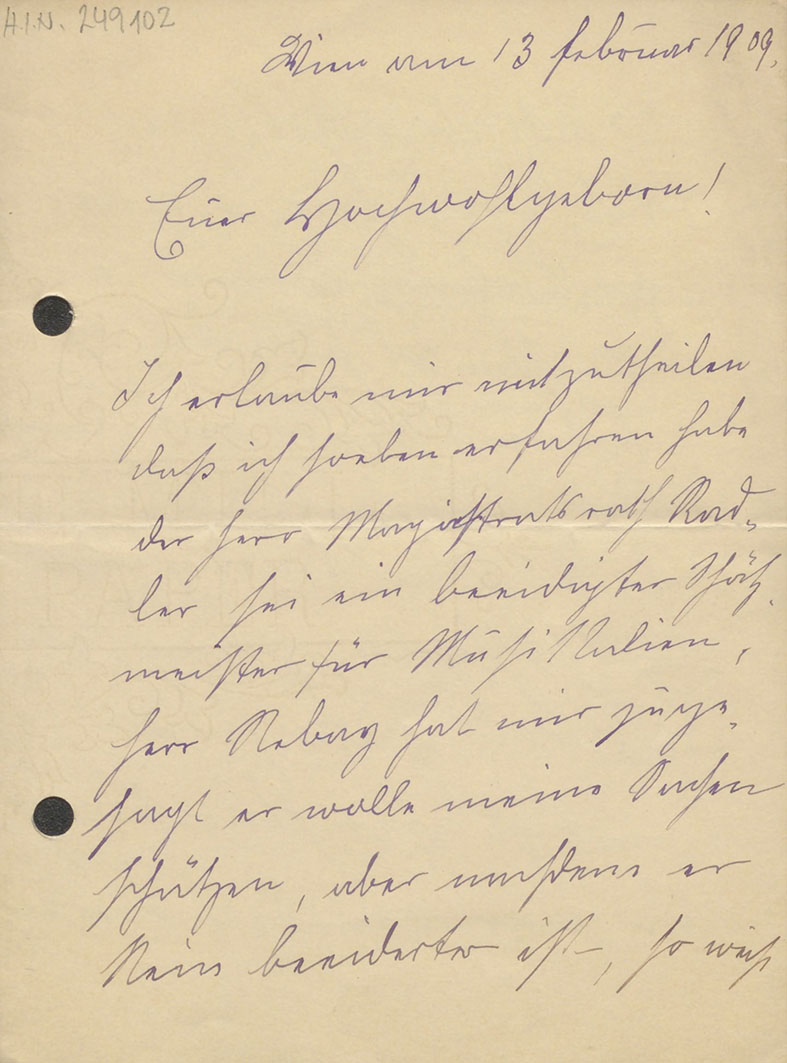 H.I.N. 249102
Wien am 13 Februar 1909.
Euer Hochwohlgeborn!
Ich erlaube mir mitzutheilen
daß ich soeben erfahren habe
der Herr Magistratsrath Rad-
ler sei ein beeidigter Schätz-
meister für Musikalien,
Herr Rebay hat mir zuge-
sagt er wolle meine Sachen
schätzen, aber nachdem er
kein beeideter ist, so weiß